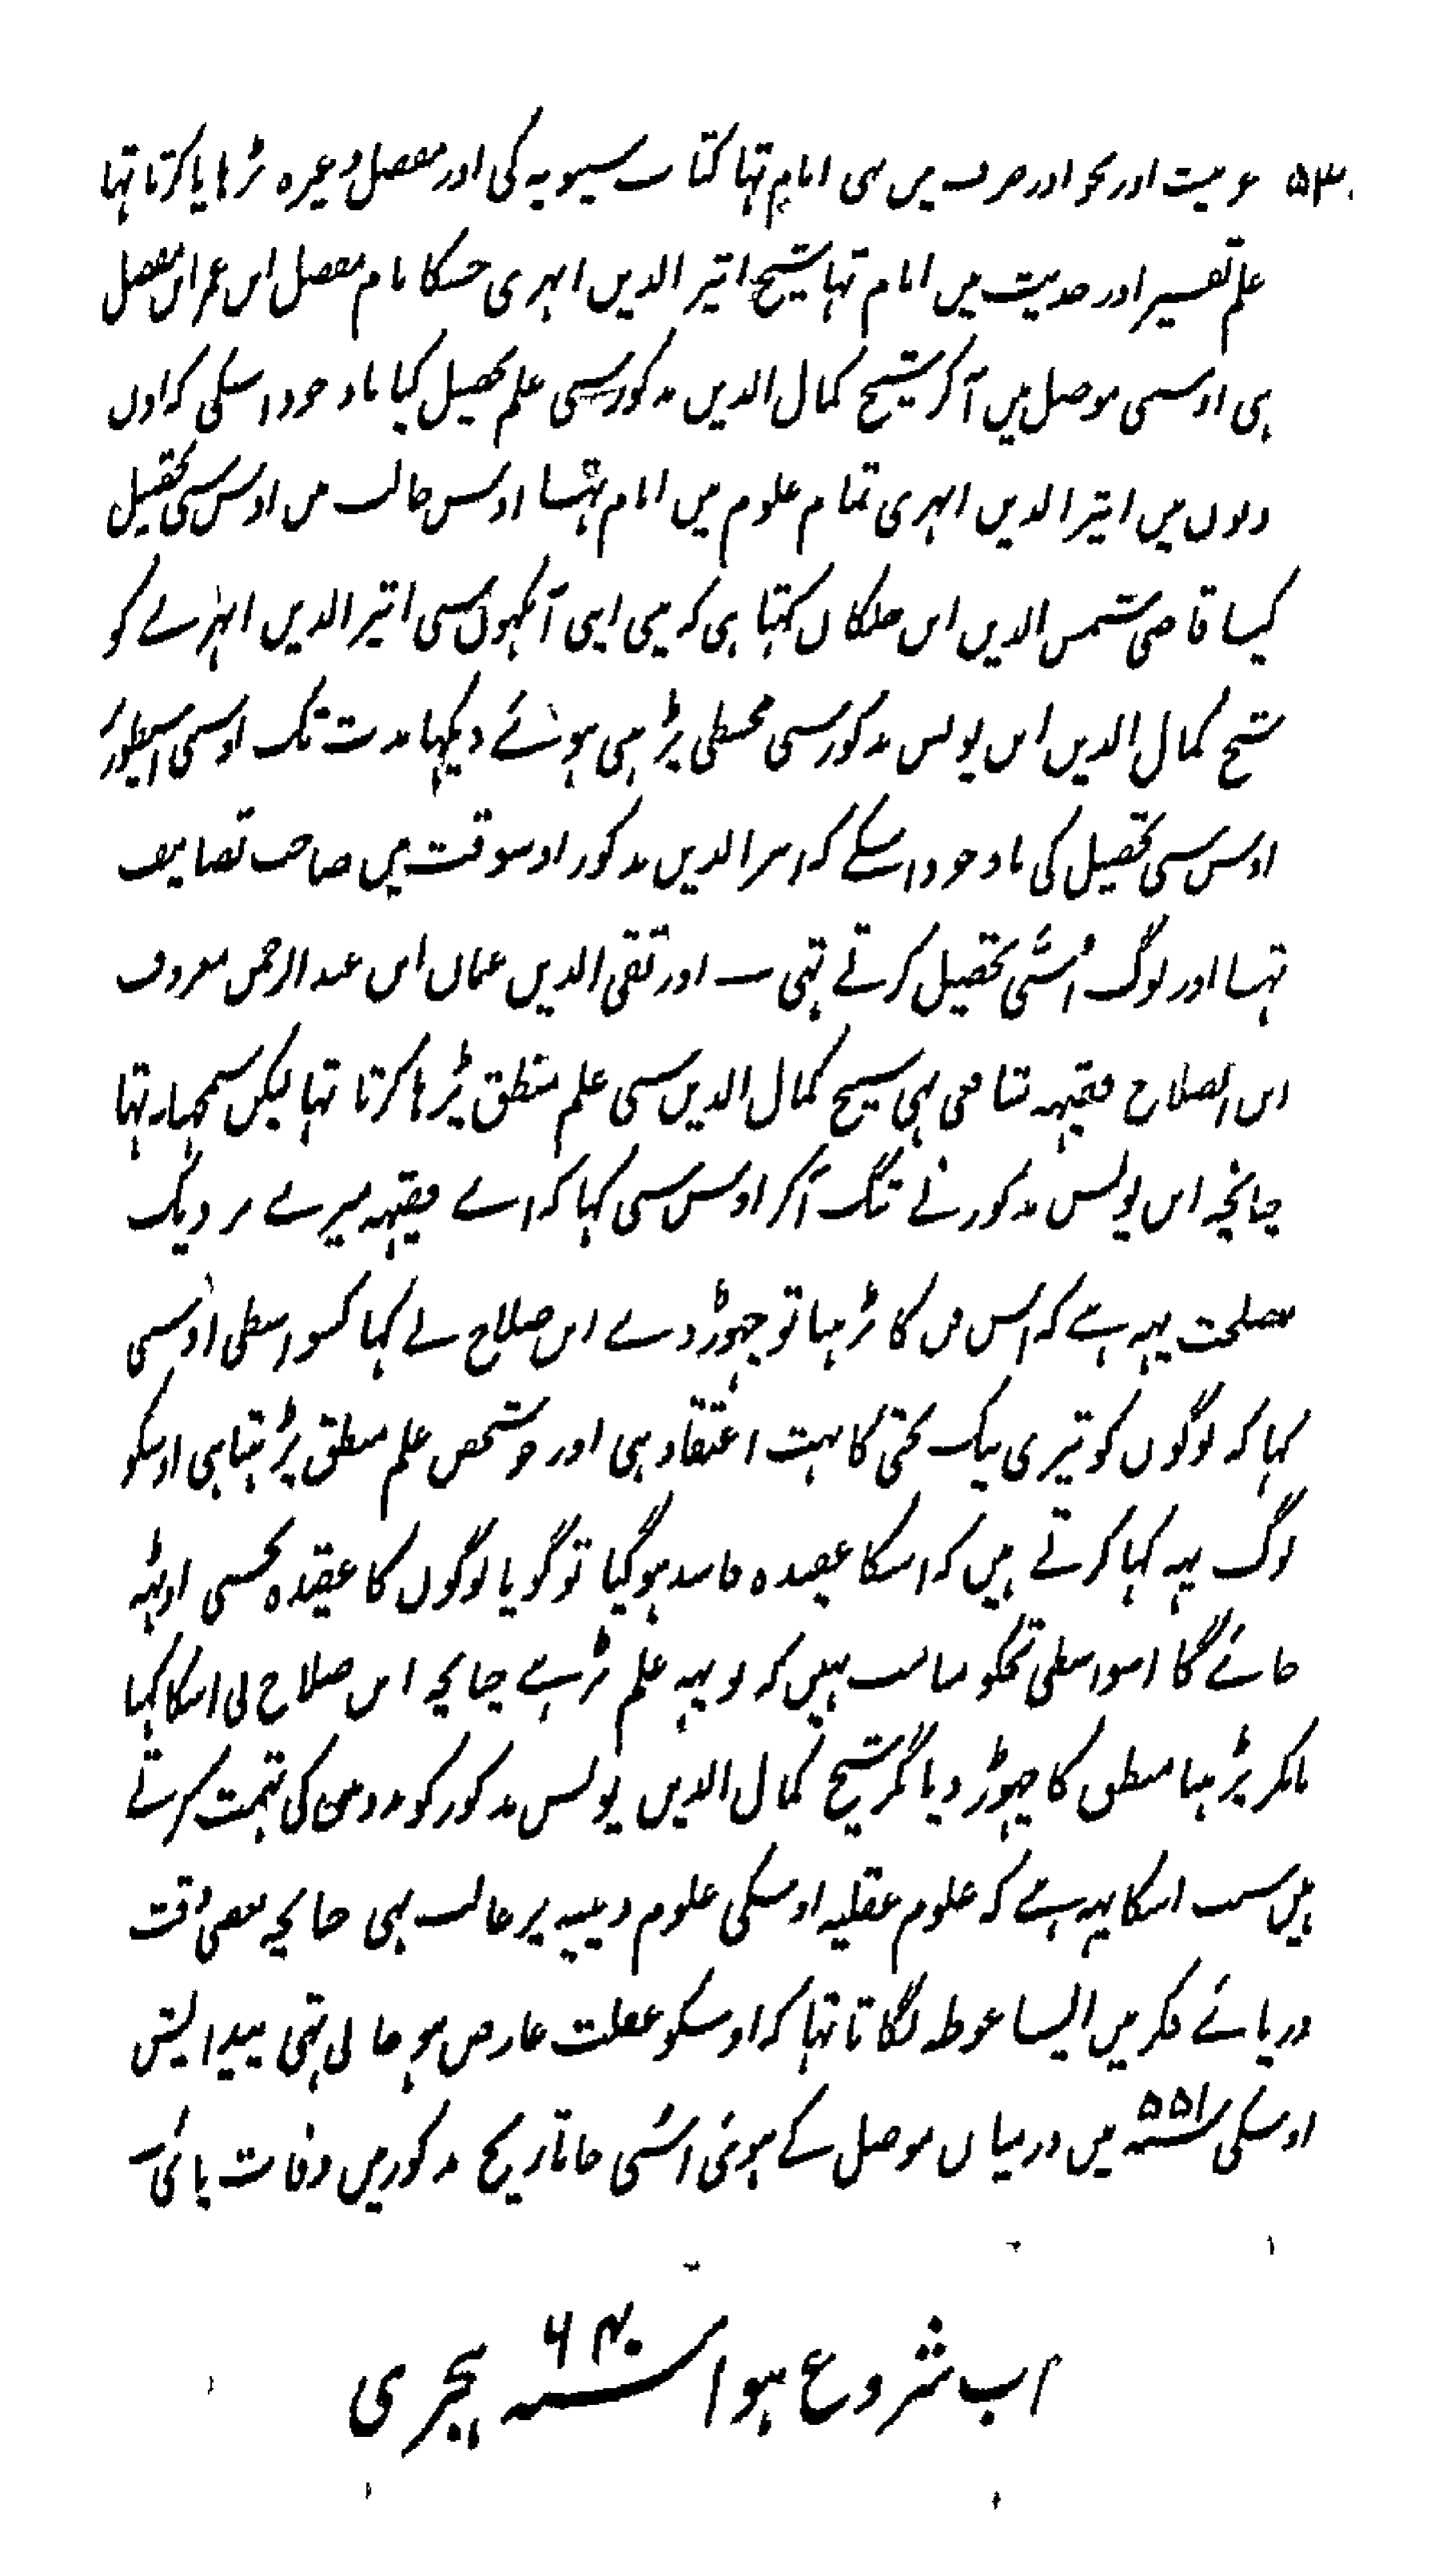 ۵۳۰ عربیت اور نحو اور صرف میں بھی امام تہا کتاب سیبویہ کی اور مفصل وغیرہ پڑہایا کرتا تہا
علم تفسیر اور حدیث میں امام تہا شیخ اثیر الدین ابہری جسکا نام مفضل ابن عمر ابن مفضل
ہی اوسسی موصل میں آکر شیخ کمال الدین مذکور سسی علم تحصیل کیا باوجود اسکی کہ اون
دنوں میں اثیر الدین ابہری تمام علوم میں امام تہا اوس حالت میں اوس سی تحصیل
کیا قاضی شمس الدین ابن خلکان کہتا ہی کہ میی اپنی آنکہوں سی اثیر الدین ابہرے کو
شیخ کمال الدین ابن یونس مذکور سی مجسطی پڑہتی ہوئے دیکہا مدت تک اوسی اسیطور
اوس سی تحصیل کی باوجود اسکے کہ اثیر الدین مذکور اوسوقت میں صاحب تصانیف
تہا اور لوگ اُسسّی تحصیل کرتے تہی ـ اور تقی الدین عثمان ابن عبد الرحمن معروف
ابن الصلاح فقیہہ شافعی بہی شیخ کمال الدین سی علم منطق پڑہا کرتا تہا لیکن سمجہا نہ تہا
چنانچہ ابن یونس مذکور نے تنگ آکر اوس سی کہا کہ اے فقیہہ میرے نزدیک
مصلحت یہہ ہے کہ اس فن کا پڑہنا تو چہوڑ دے ابن صلاح نے کہا کسواسطی اوسسی
کہا کہ لوگوں کو تیری نیک بختی کا بہت اعتقاد ہی اور جو شخص علم منطق پڑہتا ہی اوسکو
لوگ یہہ کہا کرتے ہیں کہ اسکا عقیدہ فاسد ہوگیا تو گویا لوگوں کا عقیدہ تجسی اوٹہہ
جائے گا اسواسطی تجکو مناسب نہیں کہ تو یہہ علم پڑہے چنانچہ ابن صلاح نی اسکا کہا
مانکر پڑہنا منطق کا چہوڑ دیا مگر شیخ کمال الدین یونس مذکور کو مدد دین کی تہمت کرتے
ہیں سبب اسکا یہہ ہے کہ علوم عقلیہ اوسکی علوم دینیہ پر غالب تہی چنانچہ بعض وقت
دریائے فکر میں ایسا غوطہ لگاتا تہا کہ اوسکو غفلت عارض ہو جاتی تہی پیدایش
اوسکی سنہ ۵۵۱ میں درمیان موصل کے ہوئی اسسّی جا تاریخ مذکور میں وفات پائی ـ
اب شروع ہوا سنہ ۶۴۰ ہجری